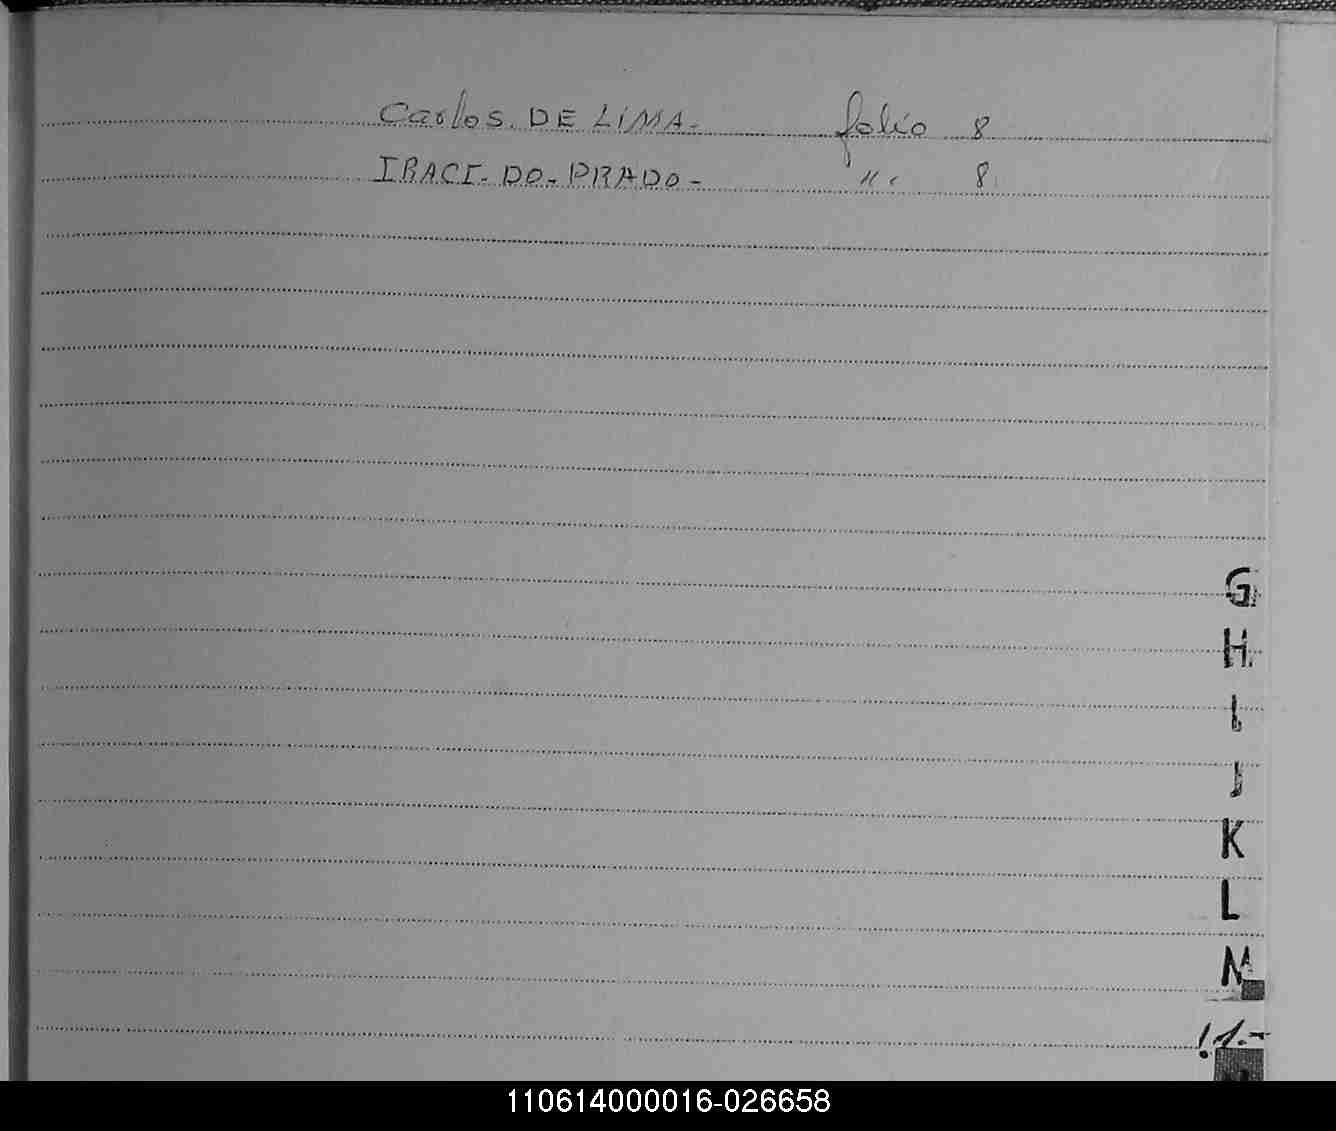 Carlos. DE LIMA. folio 8
IRACI. DO. PRADO - " 8
G
H
I
J
K
L
M
110614000016-026658